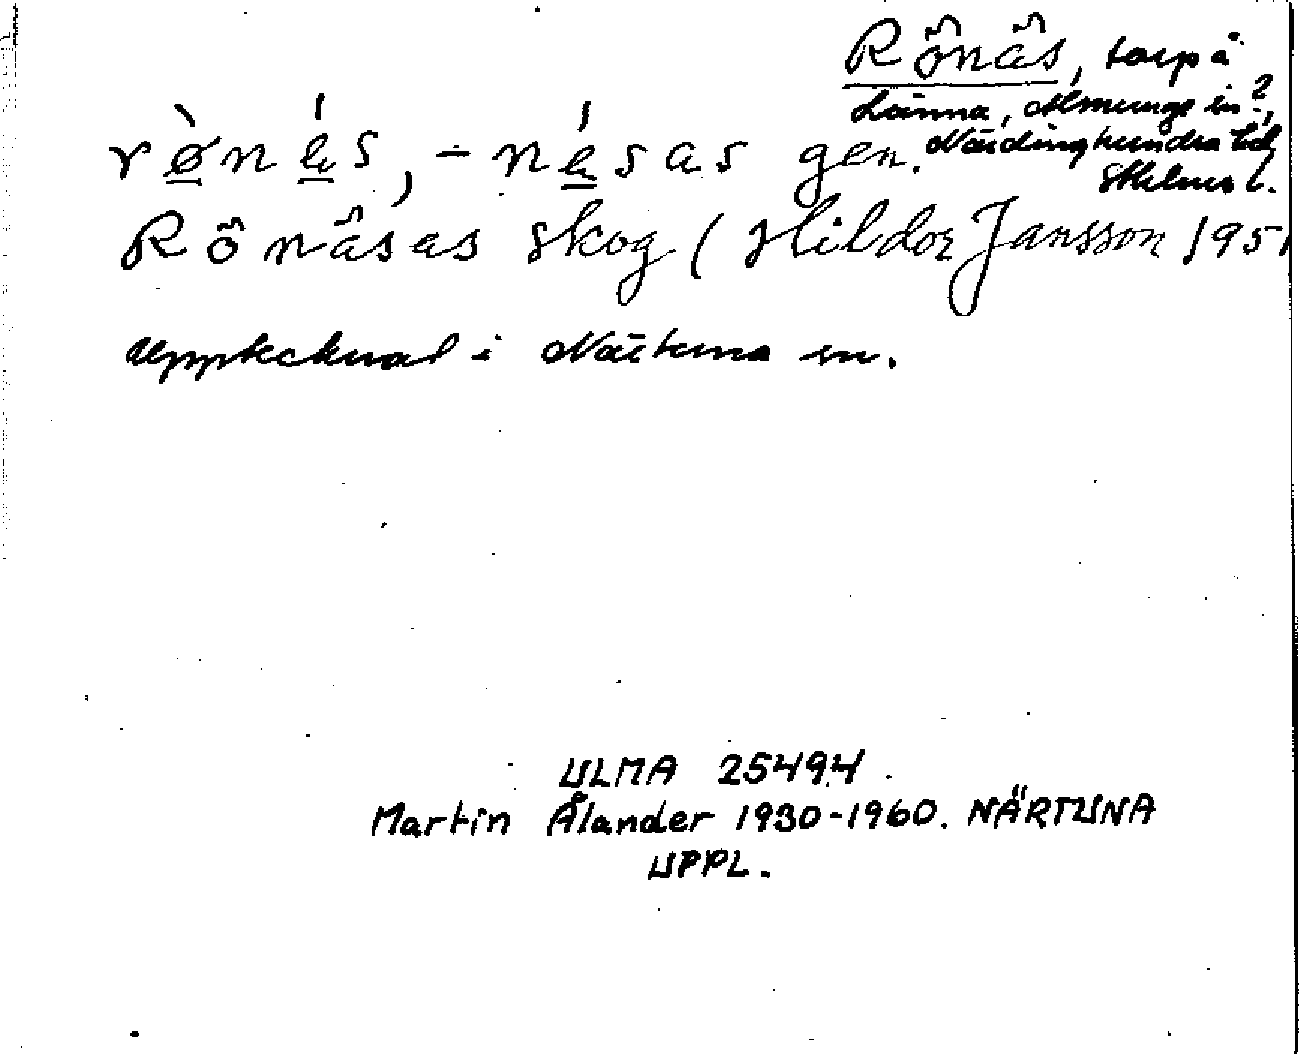 Rönäs, torp å
Länna, Almunge sn?,
Närdinghundra hd,
Sthlms l.
rø̀nés, -nésas gen.
Rönäsas skog (Hildor Jansson 1951
Upptecknad i Närtuna sn.
ULMA 25494
Martin Ålander 1930-1960. NÄRTUNA
UPPL.